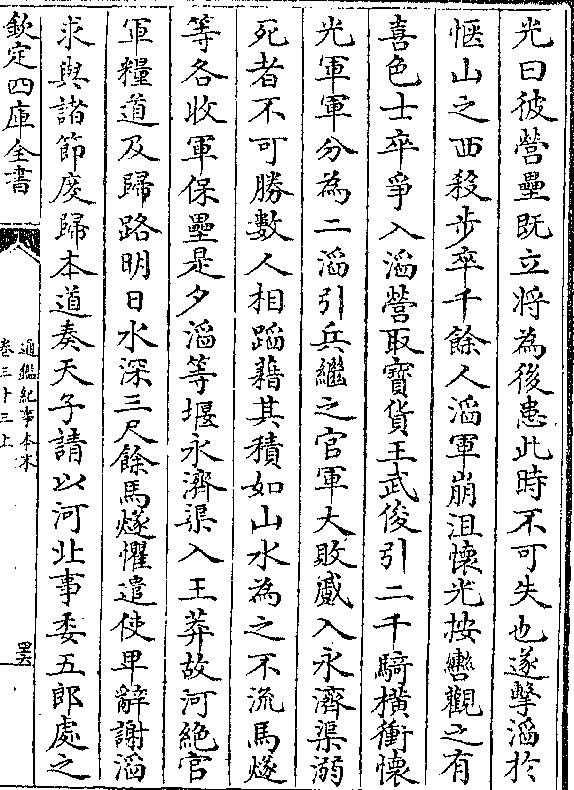 光曰彼營壘既立將為後患此時不可失也遂擊滔於
愜山之西殺步卒千餘人滔軍崩沮懷光按轡觀之有
喜色士卒爭入滔營取寶貨王武俊引二千騎橫衝懷
光軍軍分為二滔引兵繼之官軍大敗蹙入永濟渠溺
死者不可勝數人相蹈藉其積如山水為之不流馬燧
等各收軍保壘是夕滔等堰永濟渠入王莽故河絶官
軍糧道及歸路明日水深三尺餘馬燧懼遣使卑辭謝滔
求與諸節度歸本道奏天子請以河北事委五郎處之
欽定四庫全書
通鑑紀事本末
卷三十三上